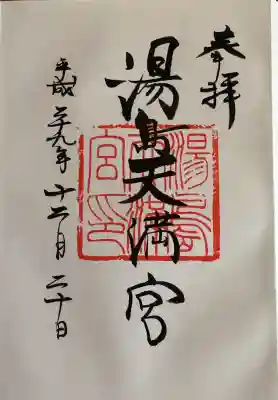 奉拝
湯島天満宮
平成二十九年 十二月 二十日
湯島天満宮印